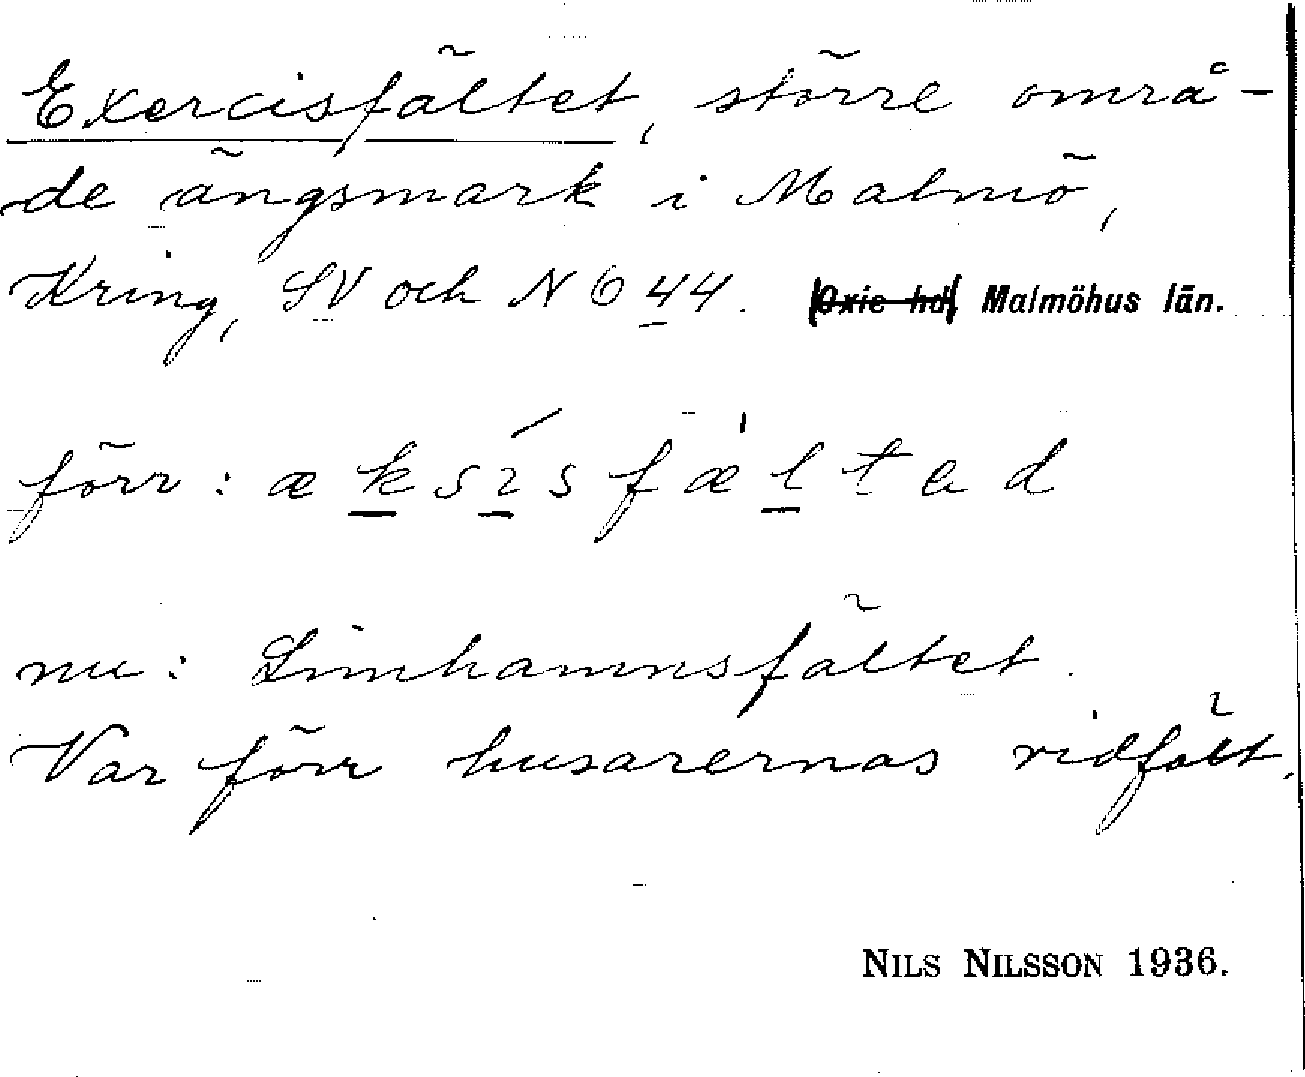 Exercisfältet, större områ-
de ängsmark i Malmö,
Kring, SV och NO 44. Oxie hd Malmöhus län.
förr: æksísfæ'ltad
nu: Limhamnsfältet.
Var förr husarernas ridfält.
NILS NILSSON 1936.